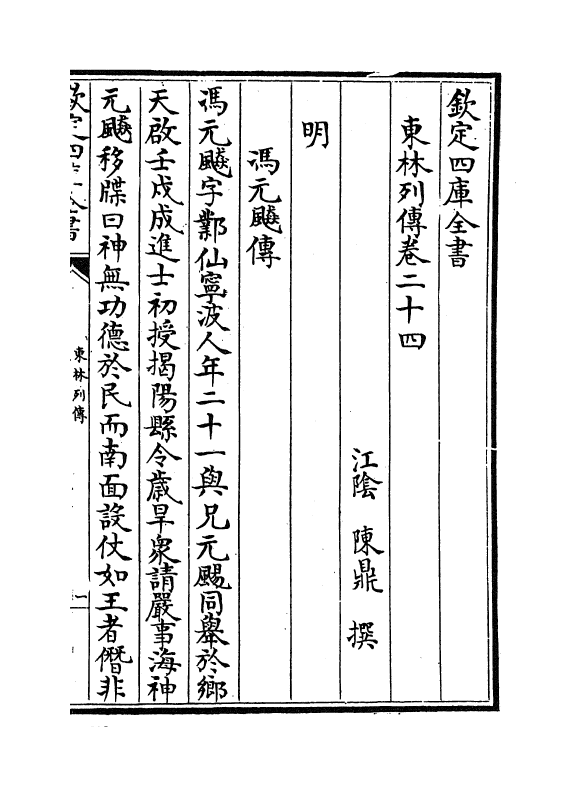 欽定四庫全書
東林列傳卷二十四
江陰 陳鼎 撰
明
馮元飂傳
馮元飂字鄴仙寧波人年二十一與兄元颺同舉於鄉
天啟壬戌成進士初授揭陽縣令歳旱衆請嚴事海神
元飂移牒曰神無功德於民而南面設仗如王者僭非
欽定四庫全書
東林列傳
一